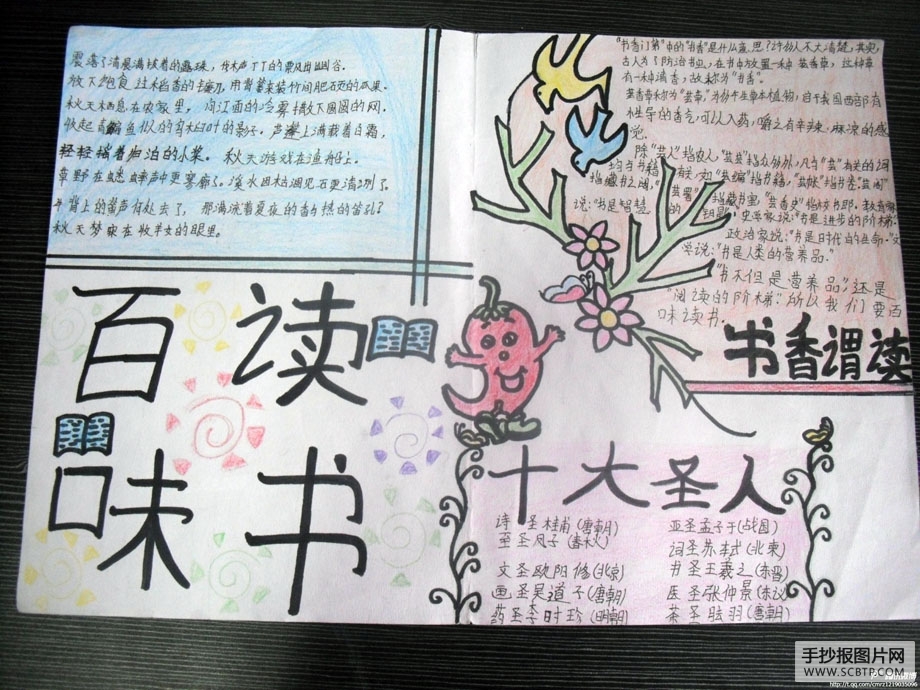 震落了清晨满披着的露珠，伐木声丁丁的飘出幽谷。
放下饱食过稻香的镰刀，用背篓来装竹间肥硕的瓜果。
秋天栖息在农家里。向江面的冷雾撒下圆圆的网，
收起青鳊鱼似的乌桕叶的影子，芦篷上满载着白霜，
轻轻摇着归泊的小桨。秋天游戏在渔船上。
草野在蟋蟀声中更寥廓了。溪水因枯涸见石更清冽了。
牛背上的笛声何处去了，那满流着夏夜的香与热的笛孔？
秋天梦寐在牧羊女的眼里。
百读
味书
"书香门第"中的"书香"是什么意思？许多人不大清楚，其实，
古人为了防治书虫，在书中放置一种芸香草，这种草
有一种清香，故称为"书香"。
芸香草称为"芸草"，为多年生草本植物，
性导的香气，可以入药，嚼之有辛辣、麻凉的感
觉。
除"芸人"指农人，"芸芸"指众多外，凡与"芸"有关的词
均与书籍有关，如"芸编"指书籍，"芸帙"指书卷，"芸阁"
指藏书之阁，"芸署"指藏书室，
说："书是智慧的钥匙。"史学家说："书是进步的阶梯。"
政治家说："书是时代的生命。"文
学说："书是人类的营养品。"
"书不但是营养品"还是
"阅读的阶梯"所以我们要百
味读书。
书香谓读
十大圣人
诗 圣 杜甫(唐朝)
亚圣孟子于(战国)
至圣 孔子 (春秋)
词圣苏轼(北宋)
文 圣欧阳修(北宋)
书圣王羲之(东晋)
画圣吴道子(唐朝)
医圣张仲景(东汉)
药圣李时珍(明朝)
茶圣陆羽(唐朝)
手抄报图片网
WWW.SCBTP.COM
http://t.qq.com/cmrz1219035096